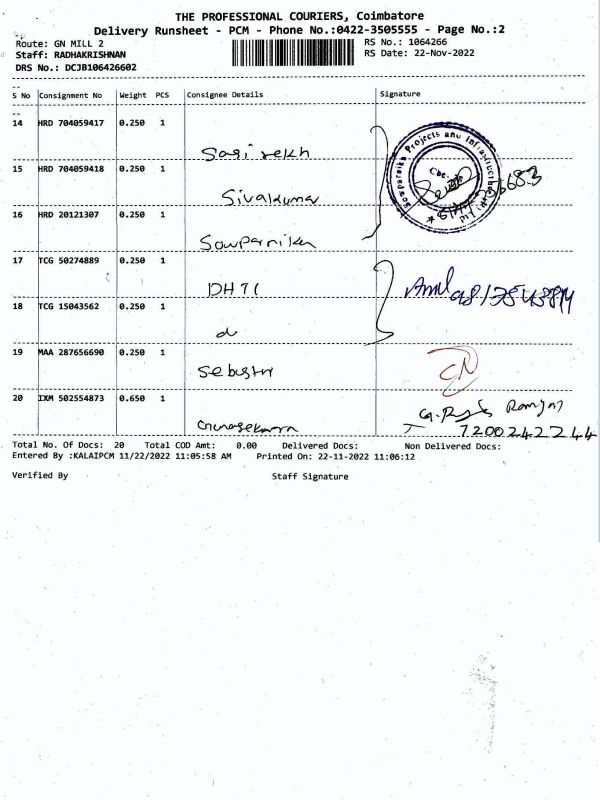 THE PROFESSIONAL COURIERS, Coimbatore
Delivery Runsheet - PCM - Phone No.:0422-3505555 - Page No.:2
Route: GN MILL 2 RS No.: 1064266
Staff: RADHAKRISHNAN RS Date: 22-Nov-2022
DRS No.: DCJB106426602
S No Consignment No Weight PCS Consignee Details Signature
14 HRD 704059417 0.250 1
Sasirekh
15 HRD 704059418 0.250 1
Sivakuma
16 HRD 20121307 0.250 1
Sowparnika
17 TCG 50274889 0.250 1
DHTI
18 TCG 15043562 0.250 1
do
19 MAA 287656690 0.250 1
Sebustn
20 IXM 502554873 0.650 1
Gunasekaran
7200242244
Total No. Of Docs: 20 Total COD Amt: 0.00 Delivered Docs: Non Delivered Docs:
Entered By :KALAIPCM 11/22/2022 11:05:58 AM Printed On: 22-11-2022 11:06:12
Verified By Staff Signature